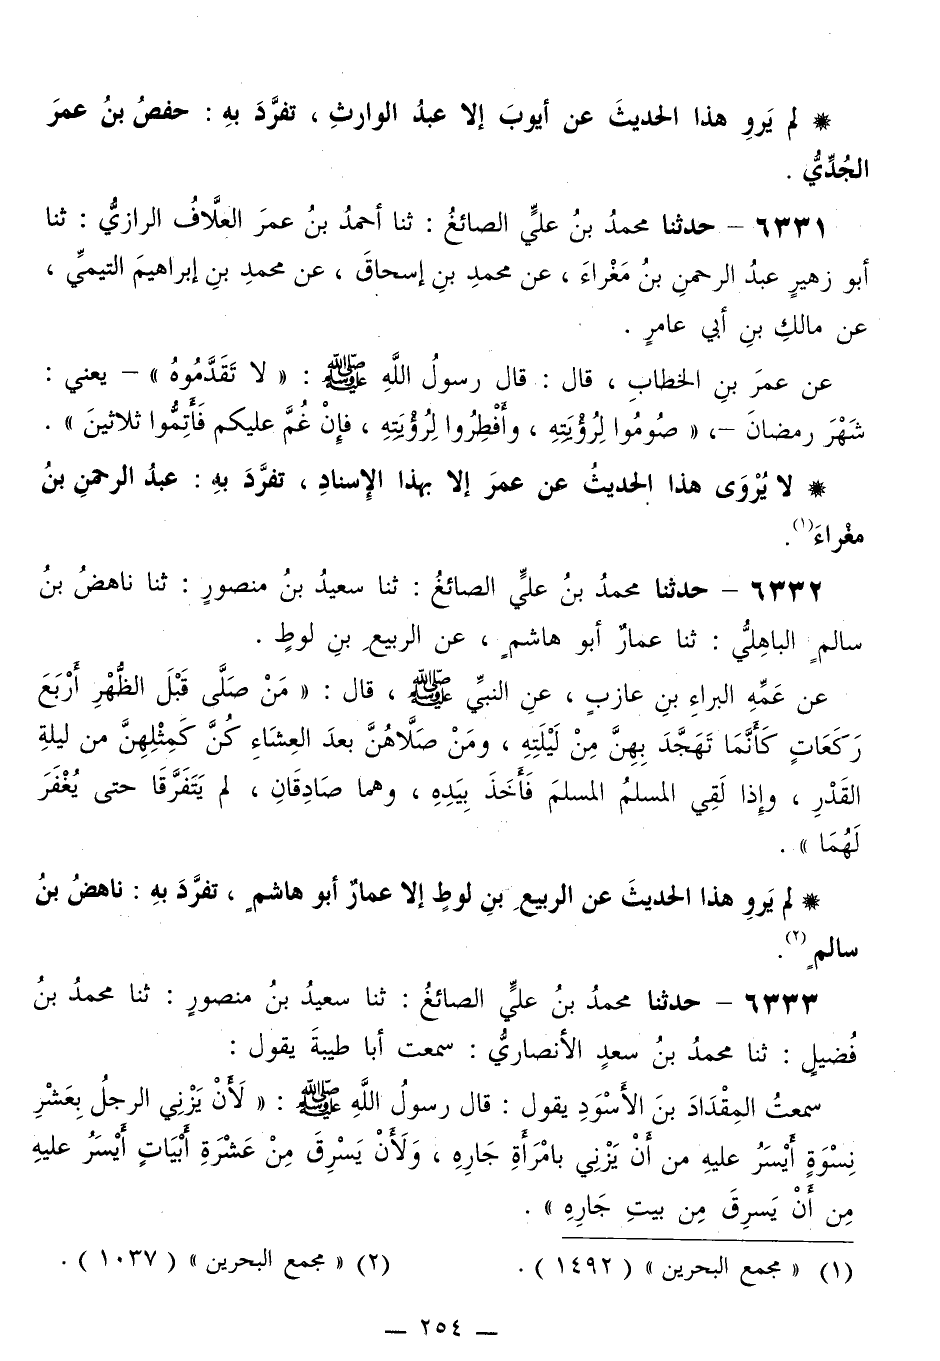 * لم يَروِ هذا الحديثَ عن أيوبَ إلا عبدُ الوارثِ ، تفرَّدَ بهِ : حفصُ بنُ عمرَ
الجُدِّيُّ .
٦٣٣١ – حدثنا محمدُ بنُ عليٍّ الصائغُ : ثنا أحمدُ بنُ عمرَ العلَّافُ الرازيُّ : ثنا
أبو زهيرٍ عبدُ الرحمنِ بنُ مَغْراءَ ، عن محمدِ بنِ إسحاقَ ، عن محمدِ بنِ إبراهيمَ التيميِّ ،
عن مالكِ بنِ أبي عامرٍ .
عن عمرَ بنِ الخطابِ ، قال : قال رسولُ اللَّهِ ﷺ : « لا تَقَدَّمُوهُ » – يعني :
شَهْرَ رمضانَ –، « صُومُوا لِرُؤْيَتِهِ ، وأَفْطِرُوا لِرُؤْيَتِهِ ، فإِنْ غُمَّ عليكم فَأَتِمُّوا ثلاثينَ » .
* لا يُرْوَى هذا الحديثُ عن عمرَ إلا بهذا الإسنادِ ، تفرَّدَ بهِ : عبدُ الرحمنِ بنُ
مغْراءَ(١).
٦٣٣٢ – حدثنا محمدُ بنُ عليٍّ الصائغُ : ثنا سعيدُ بنُ منصورٍ : ثنا ناهضُ بنُ
سالمٍ الباهِليُّ : ثنا عمارٌ أبو هاشمٍ ، عن الربيعِ بنِ لوطٍ .
عن عَمِّهِ البراءِ بنِ عازبٍ ، عنِ النبيِّ ﷺ ، قال : « مَنْ صَلَّى قَبْلَ الظُّهْرِ أَرْبَعَ
رَكَعَاتٍ كَأَنَّمَا تَهَجَّدَ بِهِنَّ مِنْ لَيْلَتِهِ ، ومَنْ صَلَّاهُنَّ بعدَ العِشَاءِ كُنَّ كَمِثْلِهِنَّ من ليلةِ
القَدْرِ ، وإِذا لَقِي المسلمُ المسلمَ فَأَخَذَ بِيَدِهِ ، وهما صَادِقَانِ ، لم يَتَفَرَّقَا حتى يُغْفَرَ
لَهُمَا » .
* لم يَروِ هذا الحديثَ عن الربيعِ بنِ لوطٍ إلا عمارٌ أبو هاشمٍ ، تفرَّدَ بهِ : ناهضُ بنُ
سالمٍ(٢).
٦٣٣٣ – حدثنا محمدُ بنُ عليٍّ الصائغُ : ثنا سعيدُ بنُ منصورٍ : ثنا محمدُ بنُ
فُضيلٍ : ثنا محمدُ بنُ سعدٍ الأنصاريُّ : سمعت أبا طيبةَ يقول :
سمعتُ المِقْدَادَ بنَ الأَسْوَدِ يقول : قال رسولُ اللَّهِ ﷺ : « لَأَنْ يَزْنِي الرجلُ بِعَشْرِ
نِسْوَةٍ أَيْسَرُ عليهِ من أَنْ يَزْنِي بامْرَأَةِ جَارِهِ ، وَلَأَنْ يَسْرِقَ مِنْ عَشْرَةِ أَبْيَاتٍ أَيْسَرُ عليهِ
مِن أَنْ يَسرِقَ مِن بيتِ جَارِهِ » .
(١) « مجمع البحرين » ( ١٤٩٢ ) . (٢) « مجمع البحرين » ( ١٠٣٧ ) .
— ٢٥٤ —